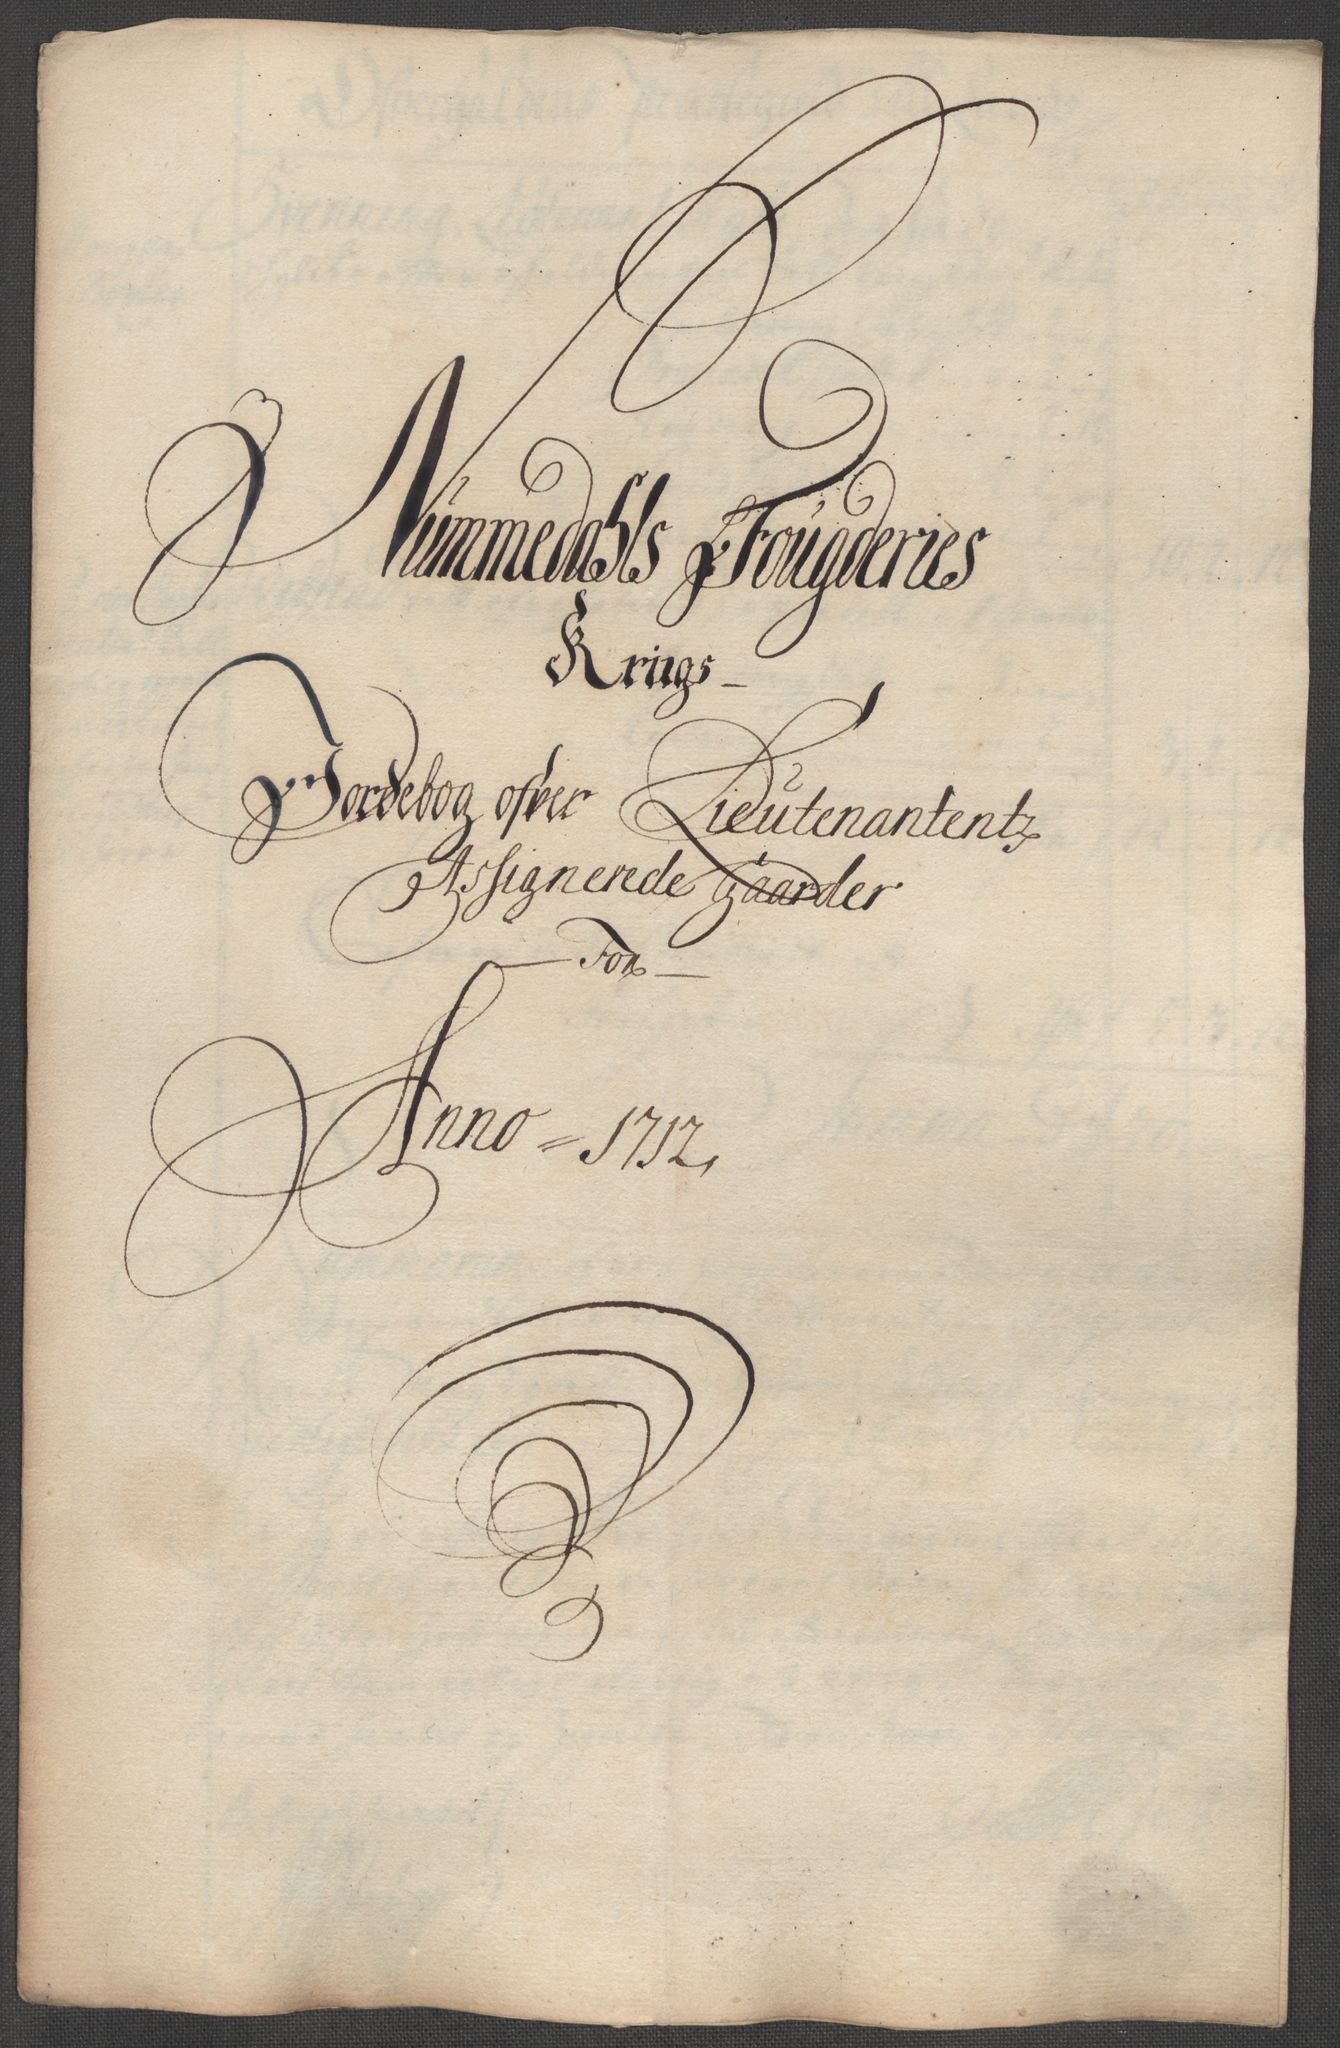 Nummedahls Fougderies
Kriigs-
Jordebog ofver Lieutenantentz
Assignerede gaarder
— For —
Anno = 1712,